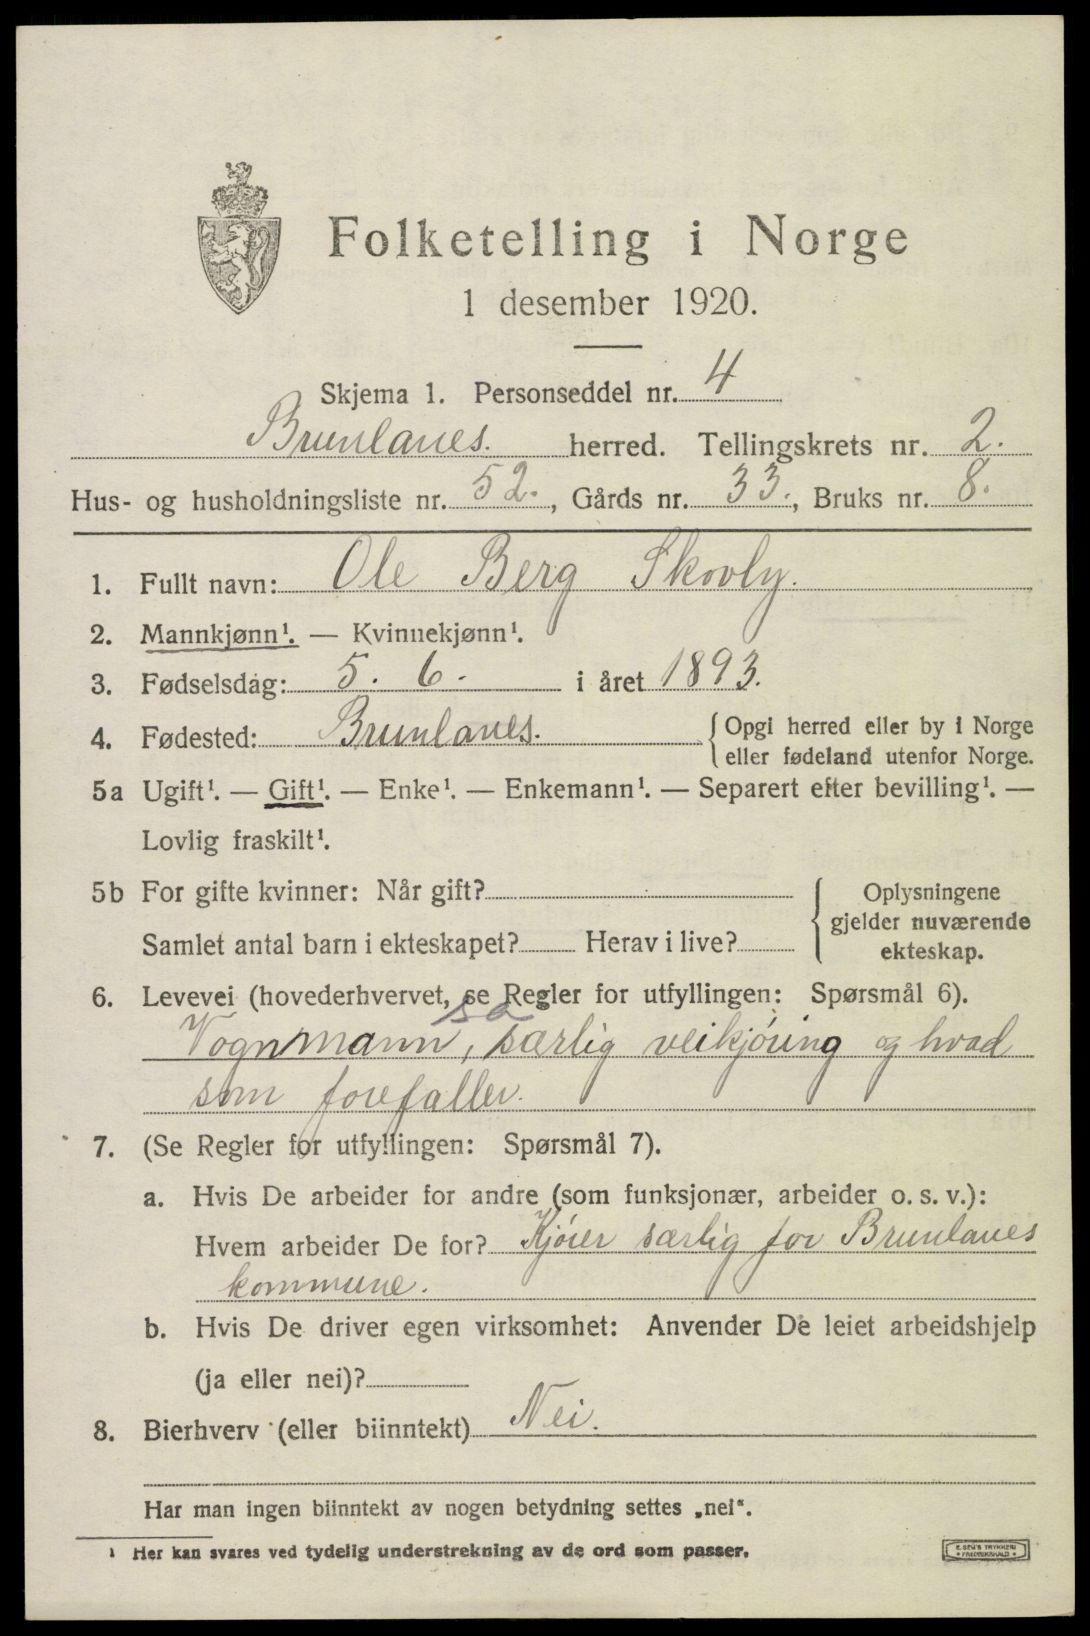 Folketelling i Norge
1 desember 1920.
Skjema 1. Personseddel nr. 4
Brunlanes. herred. Tellingskrets nr. 2.
Hus- og husholdningsliste nr. 52., Gårds nr. 33., Bruks nr. 8.
1. Fullt navn: Ole Berg Skovly.
2. Mannkjønn¹. — Kvinnekjønn¹.
3. Fødselsdag: 5. 6. i året 1893.
4. Fødested: Brunlanes. { Opgi herred eller by i Norge
eller fødeland utenfor Norge.
5a Ugift¹. — Gift¹. — Enke¹. — Enkemann¹. — Separert efter bevilling¹. —
Lovlig fraskilt¹.
5b For gifte kvinner: Når gift?
Samlet antal barn i ekteskapet? Herav i live?
{ Oplysningene
gjelder nuværende
ekteskap.
6. Levevei (hovederhvervet, se Regler for utfyllingen: Spørsmål 6).
sa
Vognmann, særlig veikjóring og hvad
som forefaller.
7. (Se Regler for utfyllingen: Spørsmål 7).
a. Hvis De arbeider for andre (som funksjonær, arbeider o. s. v.):
Hvem arbeider De for? Kjórer særlig for Brunlanes
kommune.
b. Hvis De driver egen virksomhet: Anvender De leiet arbeidshjelp
(ja eller nei)?
8. Bierhverv (eller biinntekt) Nei.
Har man ingen biinntekt av nogen betydning settes „nei“.
¹ Her kan svares ved tydelig understrekning av de ord som passer.
E. SEM'S TRYKKERI
FREDRIKSHALD